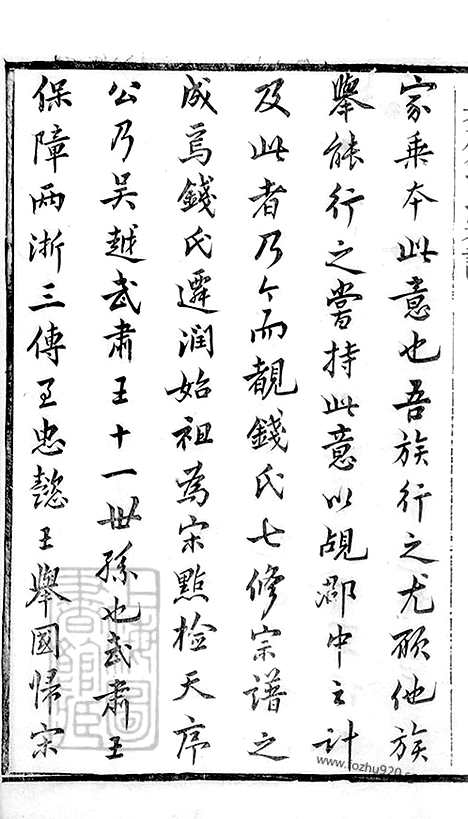 家乘本此意也吾族行之尤願他族
舉能行之嘗持此意以覘郡中之計
及此者乃今而覩錢氏七修宗譜之
成焉錢氏遷潤始祖為宋點檢天序
公乃吳越武肅王十一世孫也武肅王
保障兩浙三傳至忠懿王舉國歸宋
www.fozhu920.com